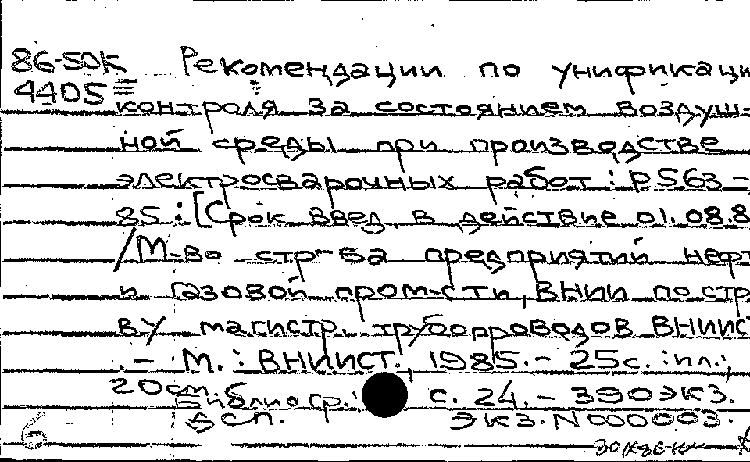 86-50К Рекомендации по унификаци
4405 контроля за состоянием воздуш-
ной среды при производстве
электросварочных работ: Р563-
85: [Срок введ. в действие 01.08.8
/М-во стр-ва предприятий нефт
и газовой пром-сти, ВНИИ по стр
ву магистр. трубопроводов ВНИИС
.- М.: ВНИИСТ, 1985.- 25с.: ил.;
20см. Библиогр.: с. 24.- 390экз.
Бсп. Экз.N000003.
6